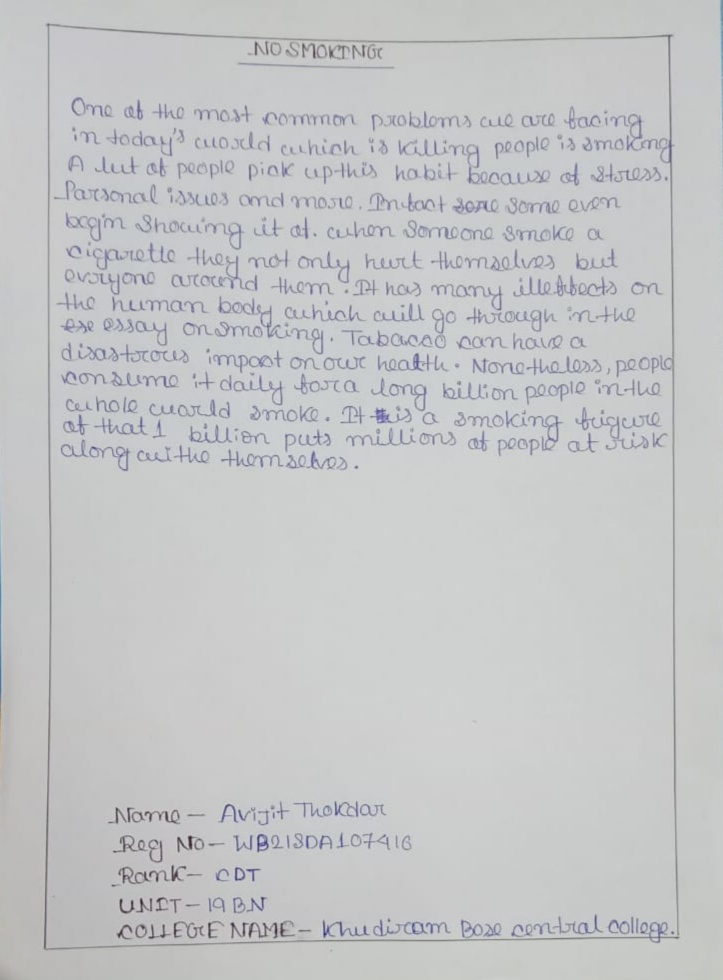 NO SMOKING
One of the most common problems we are facing
in today's world which is killing people is smoking
A lut of people pick up this habit because of stress.
Parsonal issues and more. Infact some some even
begin showing it of. when someone smoke a
cigarette they not only hurt themselves but
everyone around them. It has many illeffects on
the human body which will go through in the
ese essay on smoking. Tabacoo can have a
disastrous impact on our health. Nonetheless, people
consume it daily for a long billion people in the
whole world smoke. It is a smoking frigure
of that 1 billion puts millions of people at risk
along withe themselves.
Name - Avijit Thokdar
Reg No - WB21SDA107416
Rank - CDT
UNIT - 19 BN
COLLEGE NAME - Khudiram Bose central college.